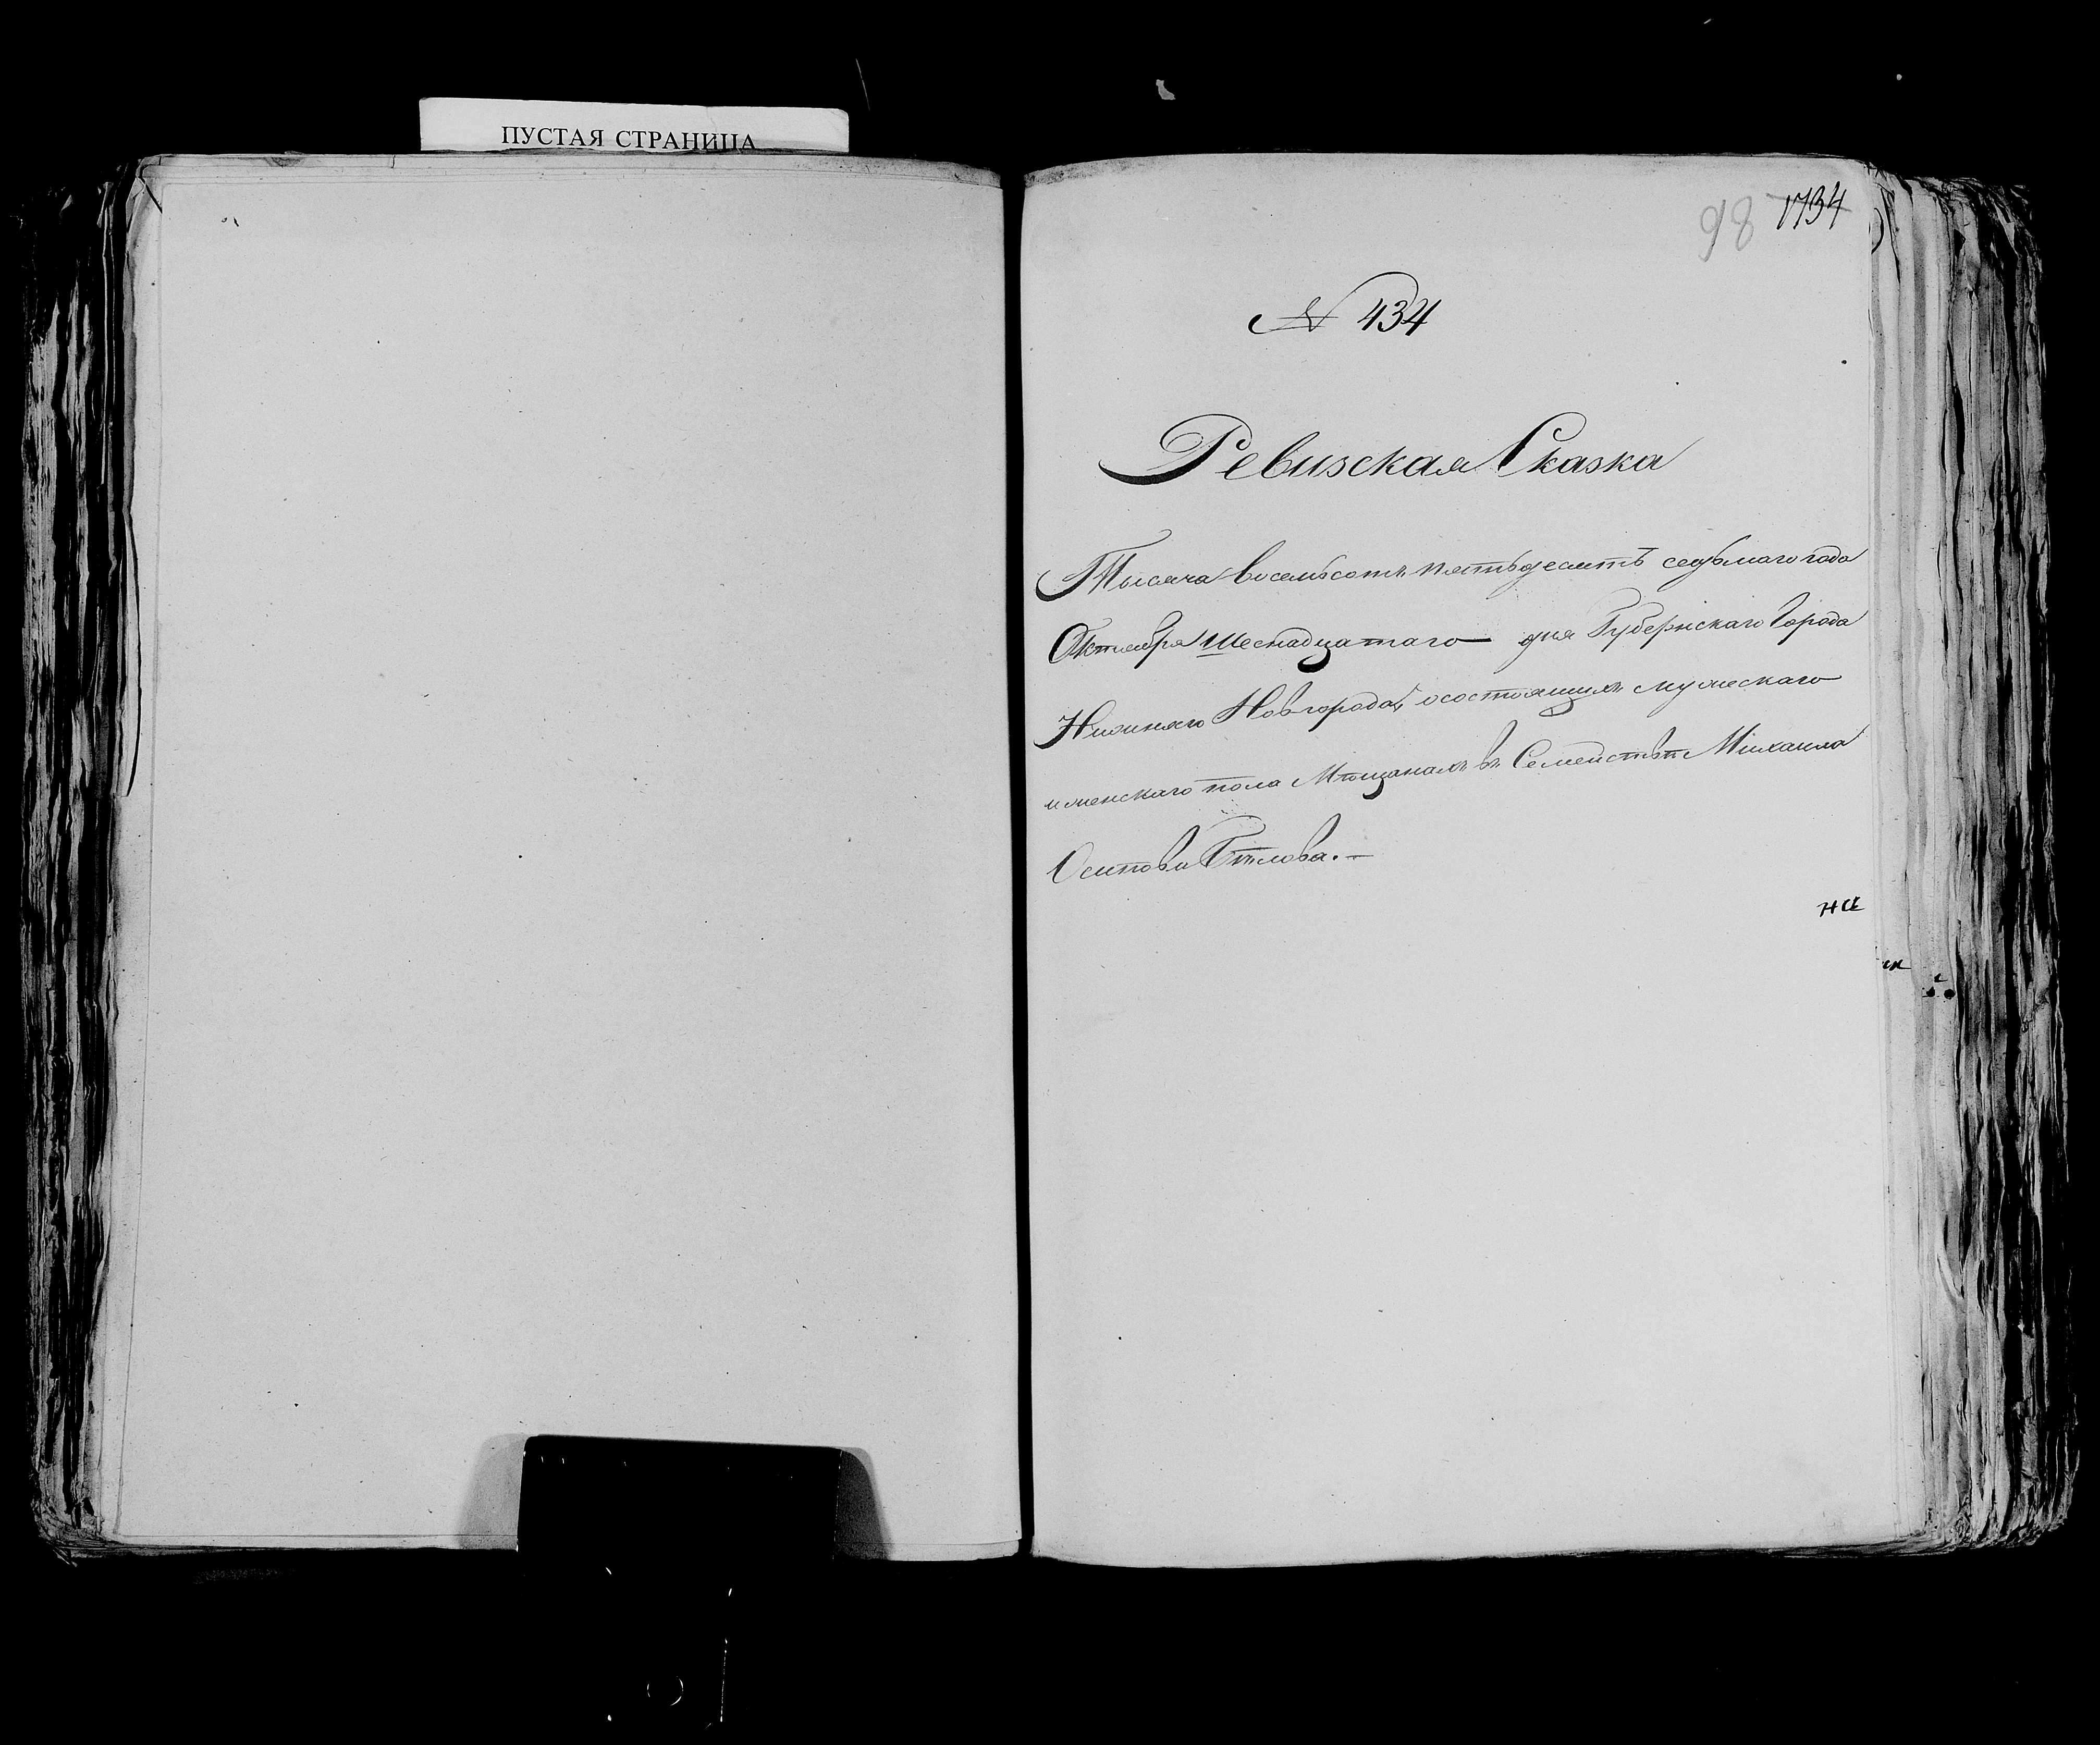 ПУСТАЯ СТРАНИЦА
98 1734
№ 434
Ревизская Сказка
Тысяча восемьсотъ пятьдесятъ седьмаго года
Октября Шеснадцатаго дня Губернскаго Города
Нижняго Новгорода, о состоящихъ мужескаго
и женскаго пола Мѣщанахъ въ Семействѣ Михаила
Осипова Бѣлова. —